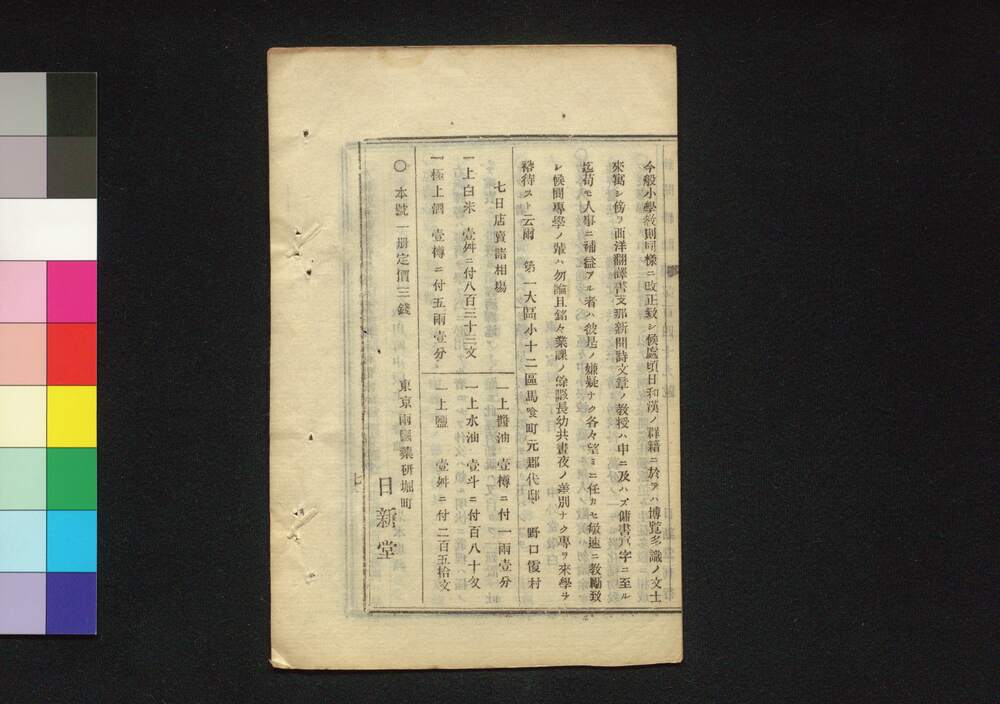 今般小學敎則同樣ニ改正致シ候處頃日和漢ノ群籍ニ於テハ博覧多識ノ文士
來寓シ傍ヲ西洋翻譯書支那新聞詩文章ノ敎授ハ申ニ及ハズ傭書戸字ニ至ル
迄苟モ人事ニ補益アル者ハ彼是ノ嫌疑ナク各々望ミニ任カセ敏速ニ敎勵致
シ候間專學ノ輩ハ勿論且銘々業課ノ餘談長幼共晝夜ノ差別ナク專ヲ來學ヲ
希待スト云爾　第一大區小十二區馬喰町元郡代邸　野口霞村
七日店賣諸相塲
一上白米　壹舛ニ付八百三十三文
一極上酒　壹樽ニ付五兩壹分
一上醬油　壹樽ニ付一兩壹分
一上水油　壹斗ニ付百八十匁
一上鹽　壹舛ニ付二百五拾文
〇本號一册定價三錢
東京兩國藥硏堀町
日新堂
七